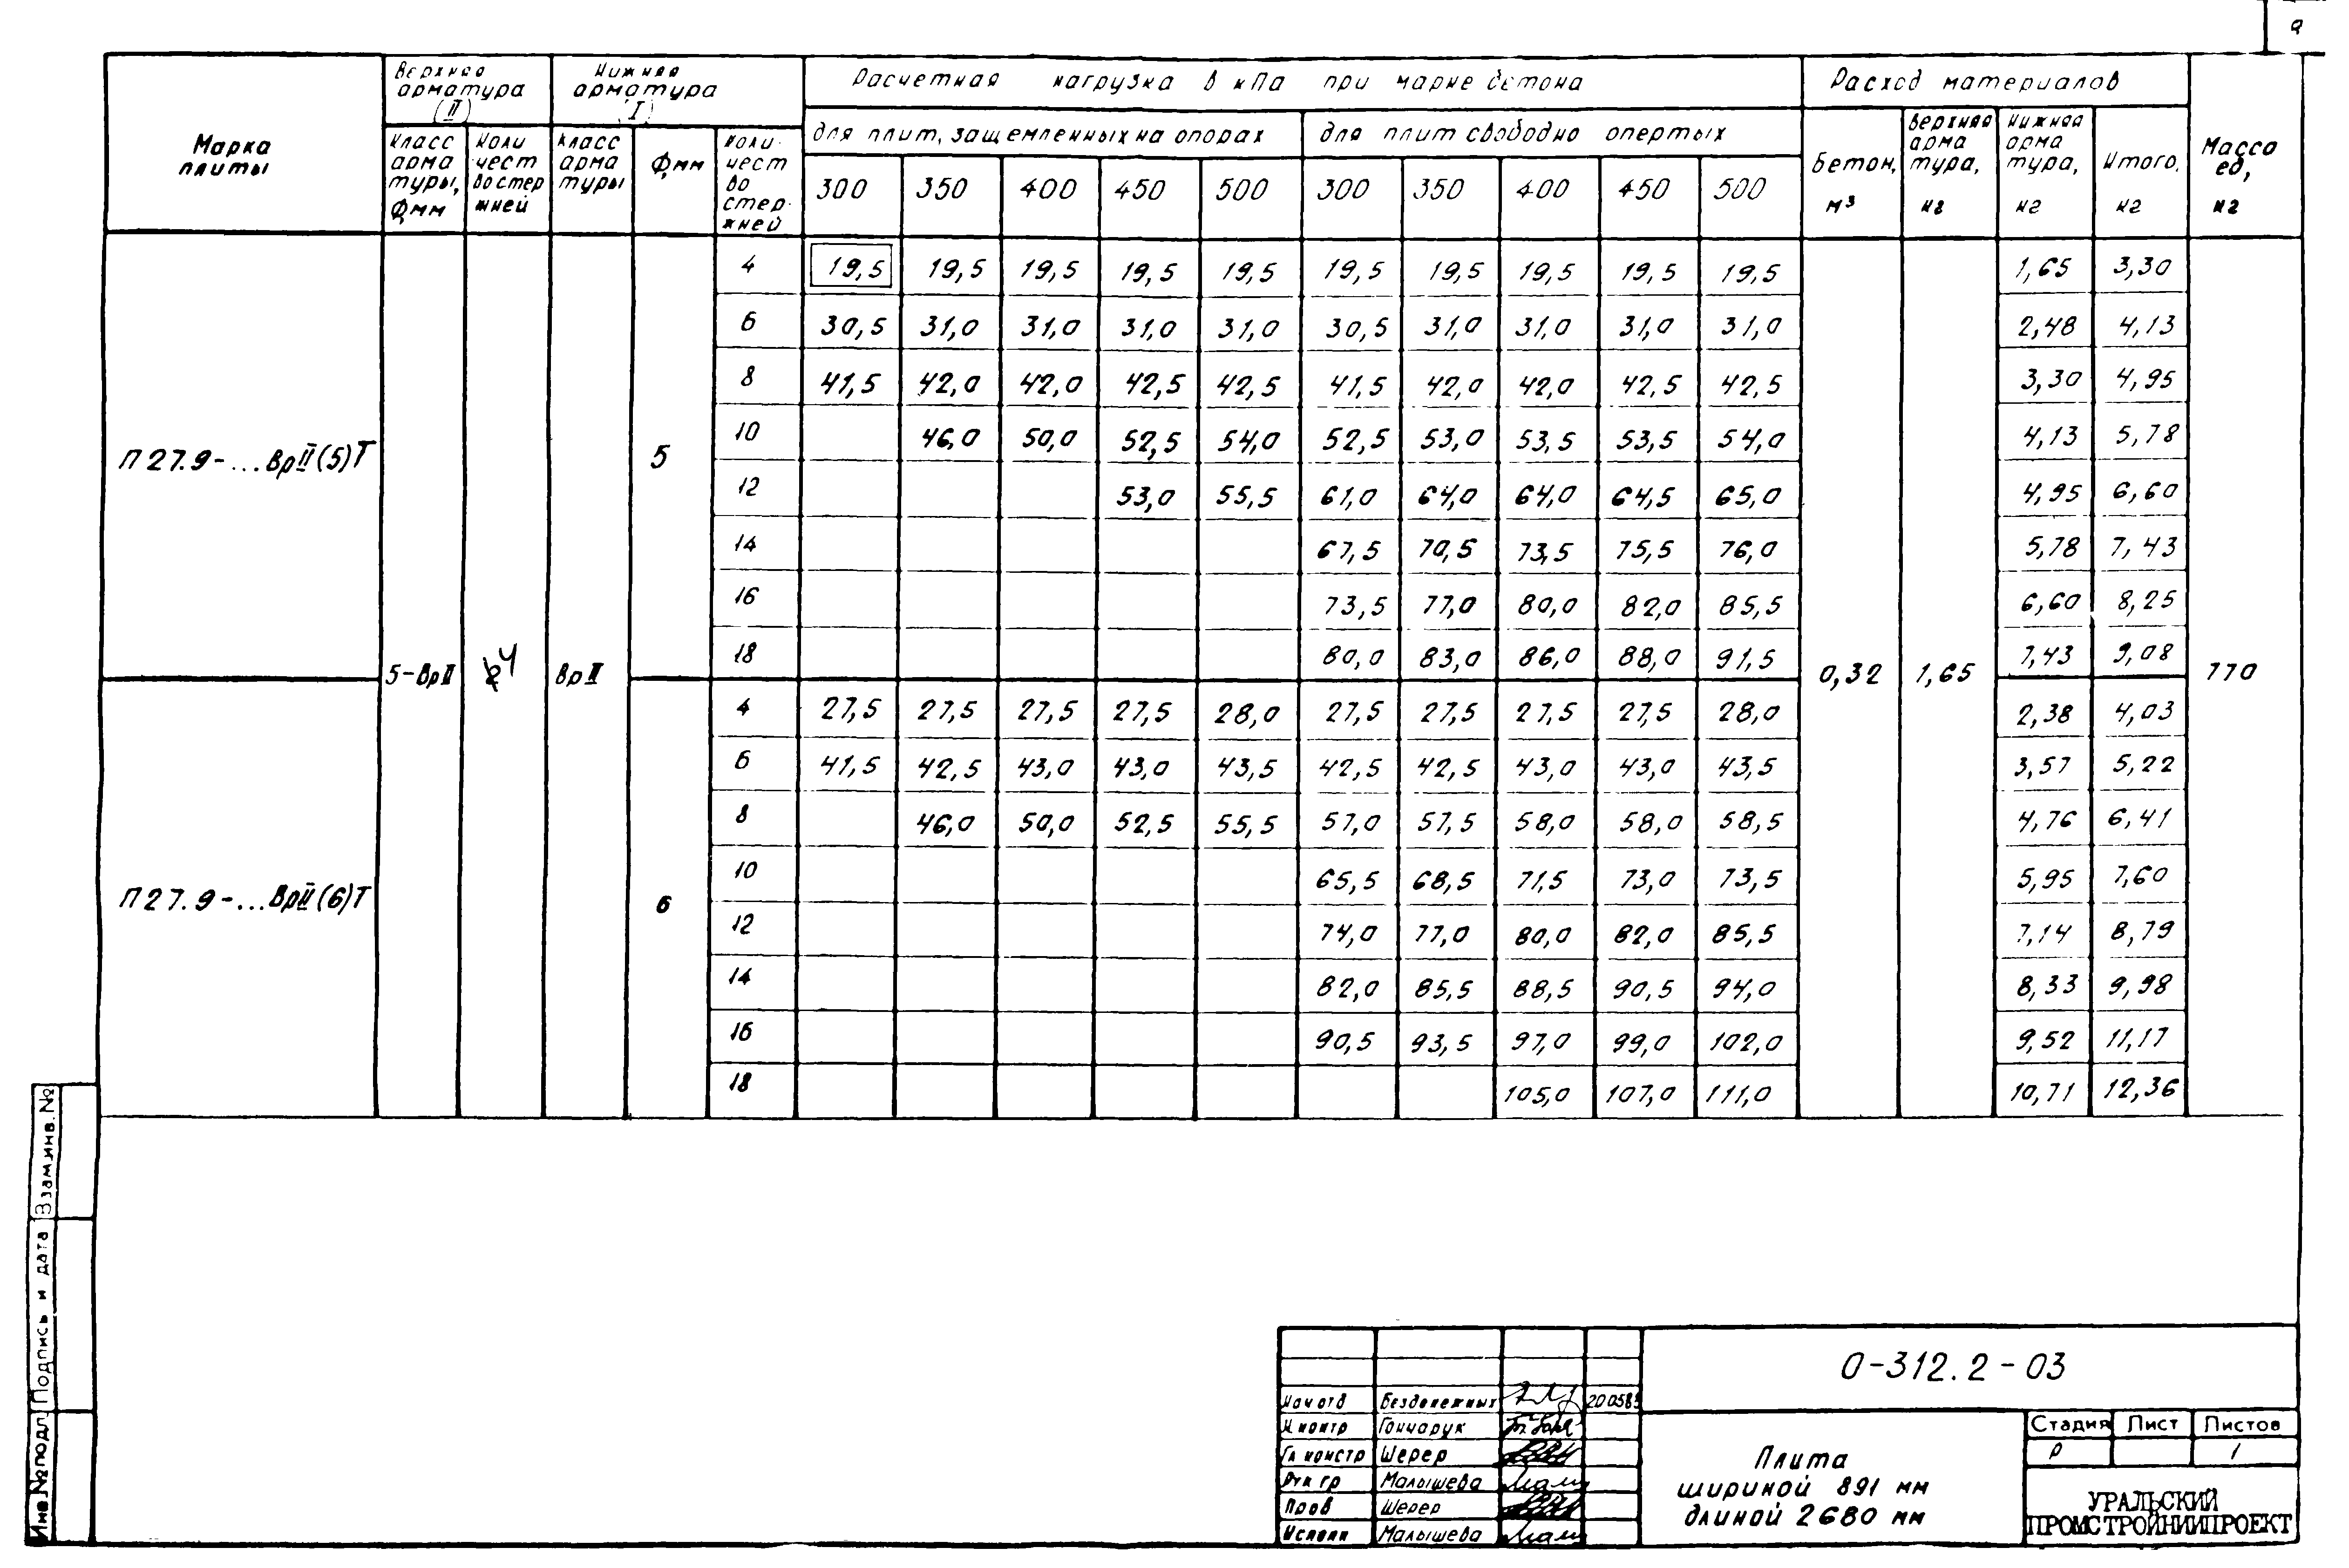 9
Марка плиты
Верхняя арматура (II)
Нижняя арматура (I)
Расчетная нагрузка в кПа при марке бетона
Расход материалов
Масса ед, кг
Класс арматуры, Фмм
Количество стержней
Класс арматуры
Фмм
Количество стержней
для плит, защемленных на опорах
для плит свободно опертых
Бетон, м³
Верхняя арматура, кг
Нижняя арматура, кг
Итого, кг
300 350 400 450 500 300 350 400 450 500
4 19,5 19,5 19,5 19,5 19,5 19,5 19,5 19,5 19,5 19,5 1,65 3,30
6 30,5 31,0 31,0 31,0 31,0 30,5 31,0 31,0 31,0 31,0 2,48 4,13
8 41,5 42,0 42,0 42,5 42,5 41,5 42,0 42,0 42,5 42,5 3,30 4,95
10 46,0 50,0 52,5 54,0 52,5 53,0 53,5 53,5 54,0 4,13 5,78
П27.9-...ВрII(5)Т 5
12 53,0 55,5 61,0 64,0 64,0 64,5 65,0 4,95 6,60
14 67,5 70,5 73,5 75,5 76,0 5,78 7,43
16 73,5 77,0 80,0 82,0 85,5 6,60 8,25
18 80,0 83,0 86,0 88,0 91,5 7,43 9,08
5-ВрII 4 ВрII 0,32 1,65 770
4 27,5 27,5 27,5 27,5 28,0 27,5 27,5 27,5 27,5 28,0 2,38 4,03
6 41,5 42,5 43,0 43,0 43,5 42,5 42,5 43,0 43,0 43,5 3,57 5,22
8 46,0 50,0 52,5 55,5 57,0 57,5 58,0 58,0 58,5 4,76 6,41
10 65,5 68,5 71,5 73,0 73,5 5,95 7,60
П27.9-...ВрII(6)Т 6
12 74,0 77,0 80,0 82,0 85,5 7,14 8,79
14 82,0 85,5 88,5 90,5 94,0 8,33 9,98
16 90,5 93,5 97,0 99,0 102,0 9,52 11,17
18 105,0 107,0 111,0 10,71 12,36
Инв.№подл. Подпись и дата Взам.инв.№
О-312.2-03
Нач отд Безденежных
Н контр Гончарук
Гл констр Шерер
Рук гр Малышева
Пров Шерер
Исполн Малышева
Плита
шириной 891 мм
длиной 2680 мм
Стадия Лист Листов
Р 1
УРАЛЬСКИЙ
ПРОМСТРОЙНИИПРОЕКТ